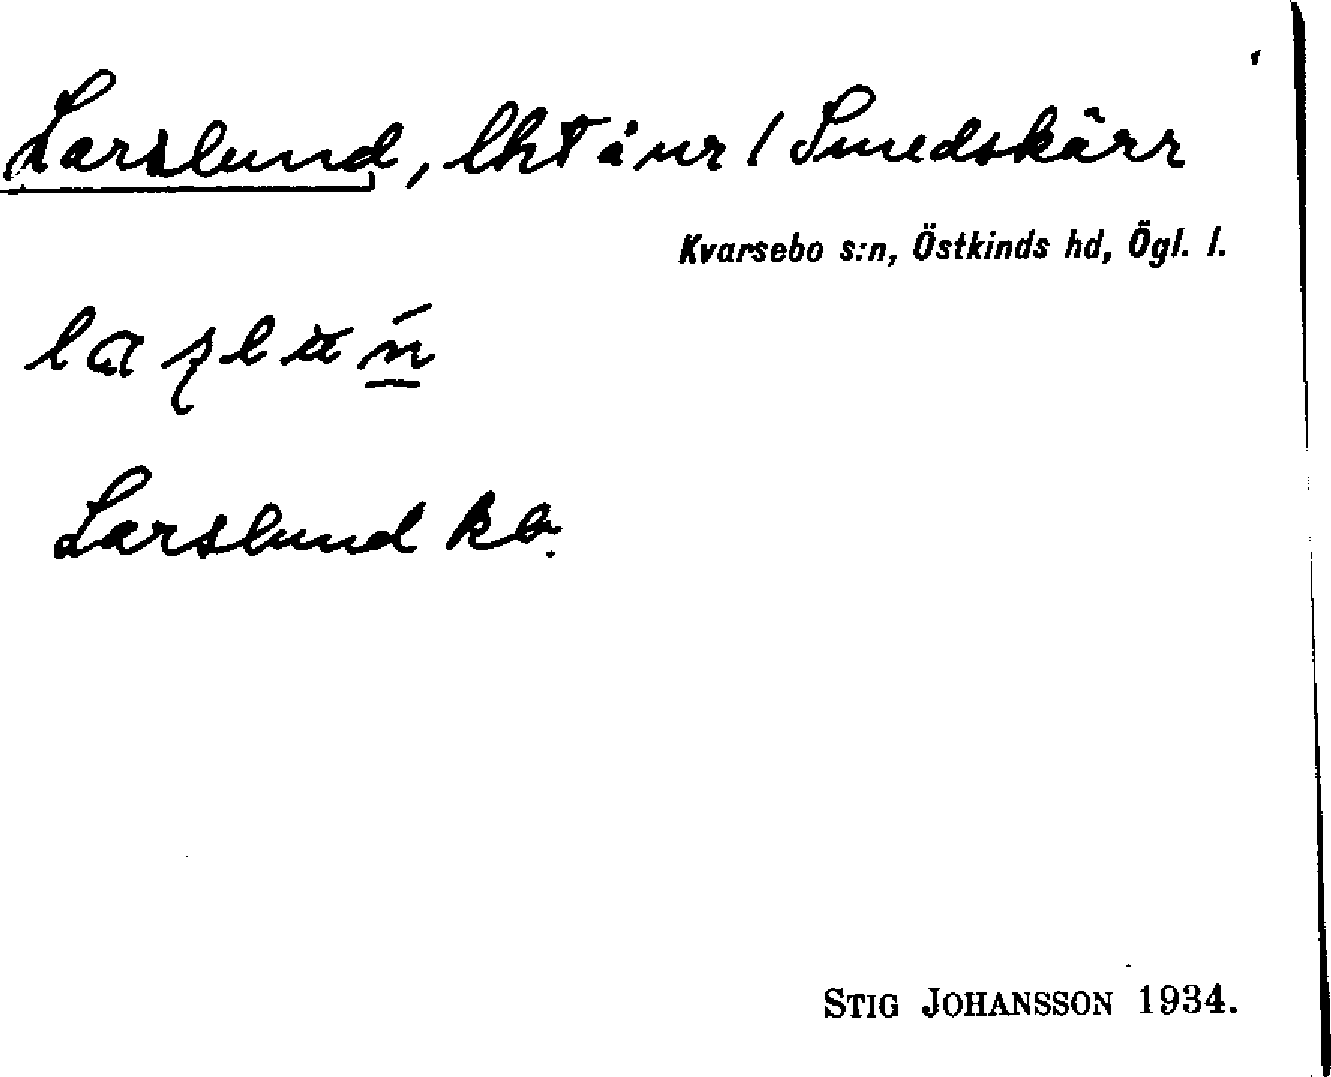 Larslund, lht å nr 1 Smedskärr
Kvarsebo s:n, Östkinds hd, Ögl. l.
Larslund kb.
STIG JOHANSSON 1934.